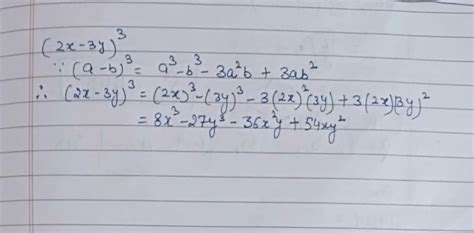 (2x-3y)³
∵ (a-b)³ = a³-b³-3a²b + 3ab²
∴ (2x-3y)³ = (2x)³-(3y)³-3(2x)²(3y)+3(2x)(3y)²
= 8x³-27y³-36x²y+54xy²